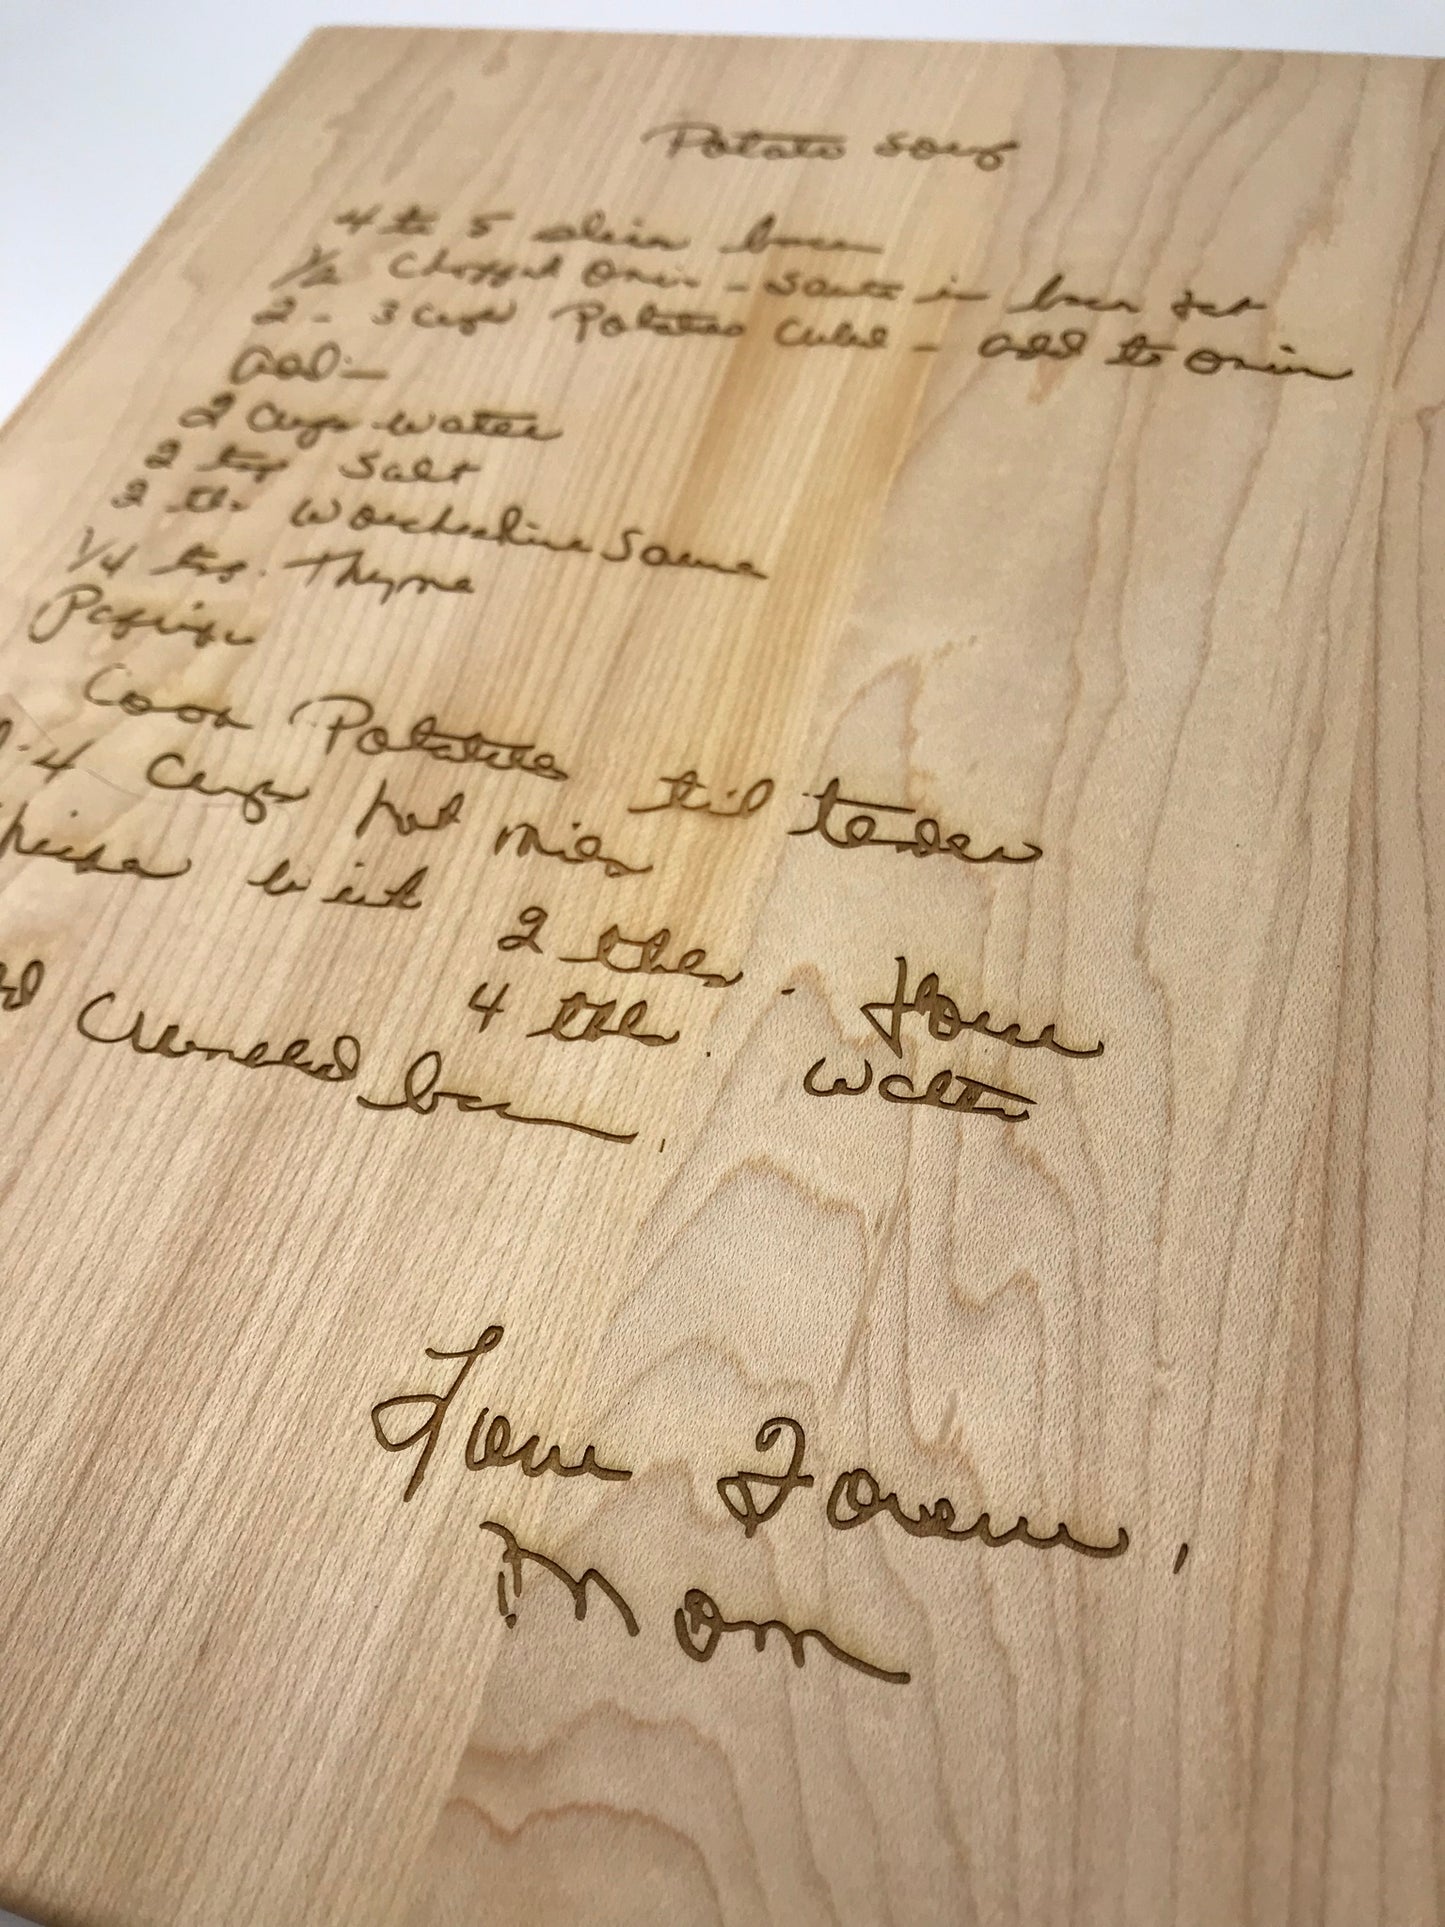 Potato Soup
4 to 5 slices bacon
1/2 Chopped Onion - Saute in bacon fat
2 - 3 cups Potatoes Cubed - add to onion
add -
2 Cups water
2 tsp Salt
2 tb. Worchershire Sauce
1/4 tsp. Thyme
Cook Potatoes til tender
4 Cups hot milk
with 2 tbls. flour
4 tbls. water
Crumbled bacon.
Love Forever,
Mom